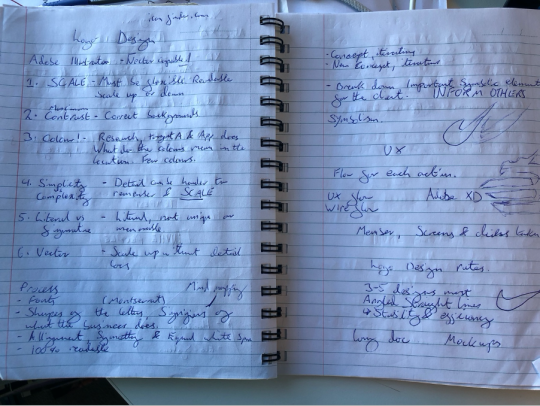 Logo Design
Adobe Illustrator - Vector
1. SCALE - Must be Readable
Scale up or down
2. Contrast - Correct backgrounds
3. Colour! - Research, does
What do the colours mean in the
location. Few colours.
4. Simplicity - Detail can be harder to
Complexity remember & SCALE
5. Literal vs - Literal, not unique or
memorable
6. Vector - Scale up without detail
loss
Process
- Fonts (Montserrat)
- Shapes of the letters, of
what the business does.
- Alignment, Symmetry & Equal white
- 100% readable
- Concept, iteration
- New Concept, iteration
- Break down important Symbolic element
for the client. INFORM OTHERS
Symbolism.
UX
Flow for each action.
UX flow Adobe XD
Wireflow
Screens &
Logo Design rates.
3-5 designs must
Angled Straight lines
Stability & efficiency
Mockups